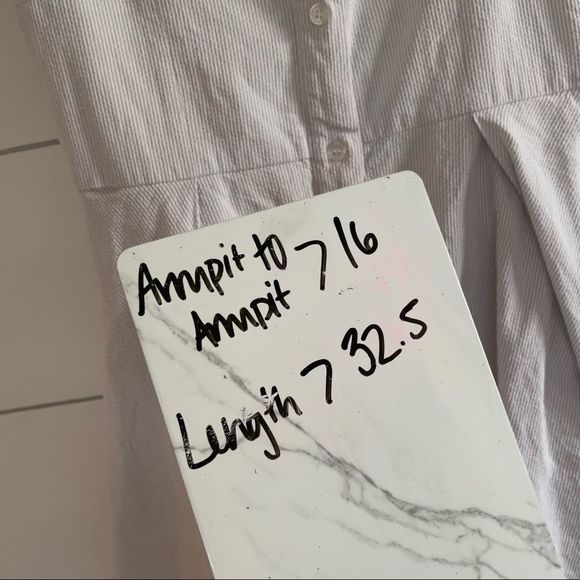 Armpit to
Armpit > 16
Length > 32.5